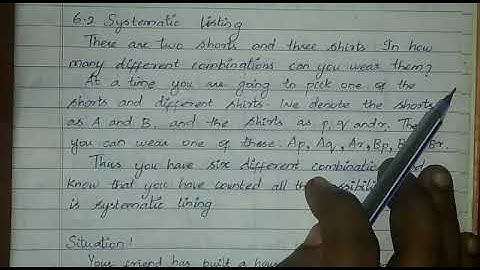 6.2 Systematic listing
There are two shorts and three shirts. In how
many different combinations can you wear them?
At a time you are going to pick one of the
shorts and different shirts. We denote the shorts
as A and B, and the shirts as p, q and r. The
you can wear one of these. Ap, Aq, Ar, Bp, Br.
Thus you have six different combinatio
know that you have counted all th
is systematic lining
Situation!
Your friend has built a hou